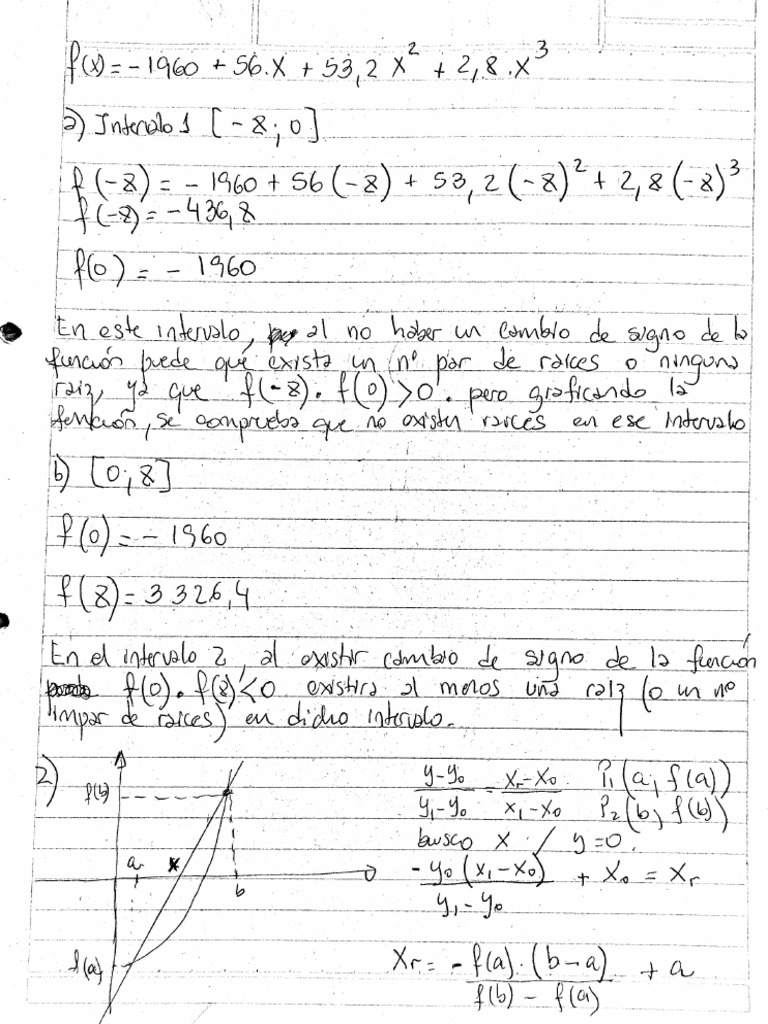 f(x) = -1960 + 56.x + 53,2 x² + 2,8.x³
a) Intervalo 1 [-8;0]
f(-8) = -1960 + 56(-8) + 53,2(-8)² + 2,8(-8)³
f(-8) = -436,8
f(0) = -1960
En este intervalo, al no haber un cambio de signo de la
función puede que exista un nº par de raices o ninguna
raiz, ya que f(-8). f(0) >0. pero graficando la
función, se comprueba que no existen raices en ese intervalo
b) [0;8]
f(0) = -1960
f(8) = 3326,4
En el intervalo 2, al existir cambio de signo de la función
f(0). f(8)<0 existira al menos una raiz (o un nº
impar de raices) en dicho intervalo.
2)
f(b)
a
x
b
f(a)
(y-y₀)/(y₁-y₀) = (xr-x₀)/(x₁-x₀) P₁(a, f(a))
P₂(b, f(b))
busco x / y=0.
-y₀(x₁-x₀)/(y₁-y₀) + x₀ = xr
xr = -f(a).(b-a)/(f(b) - f(a)) + a